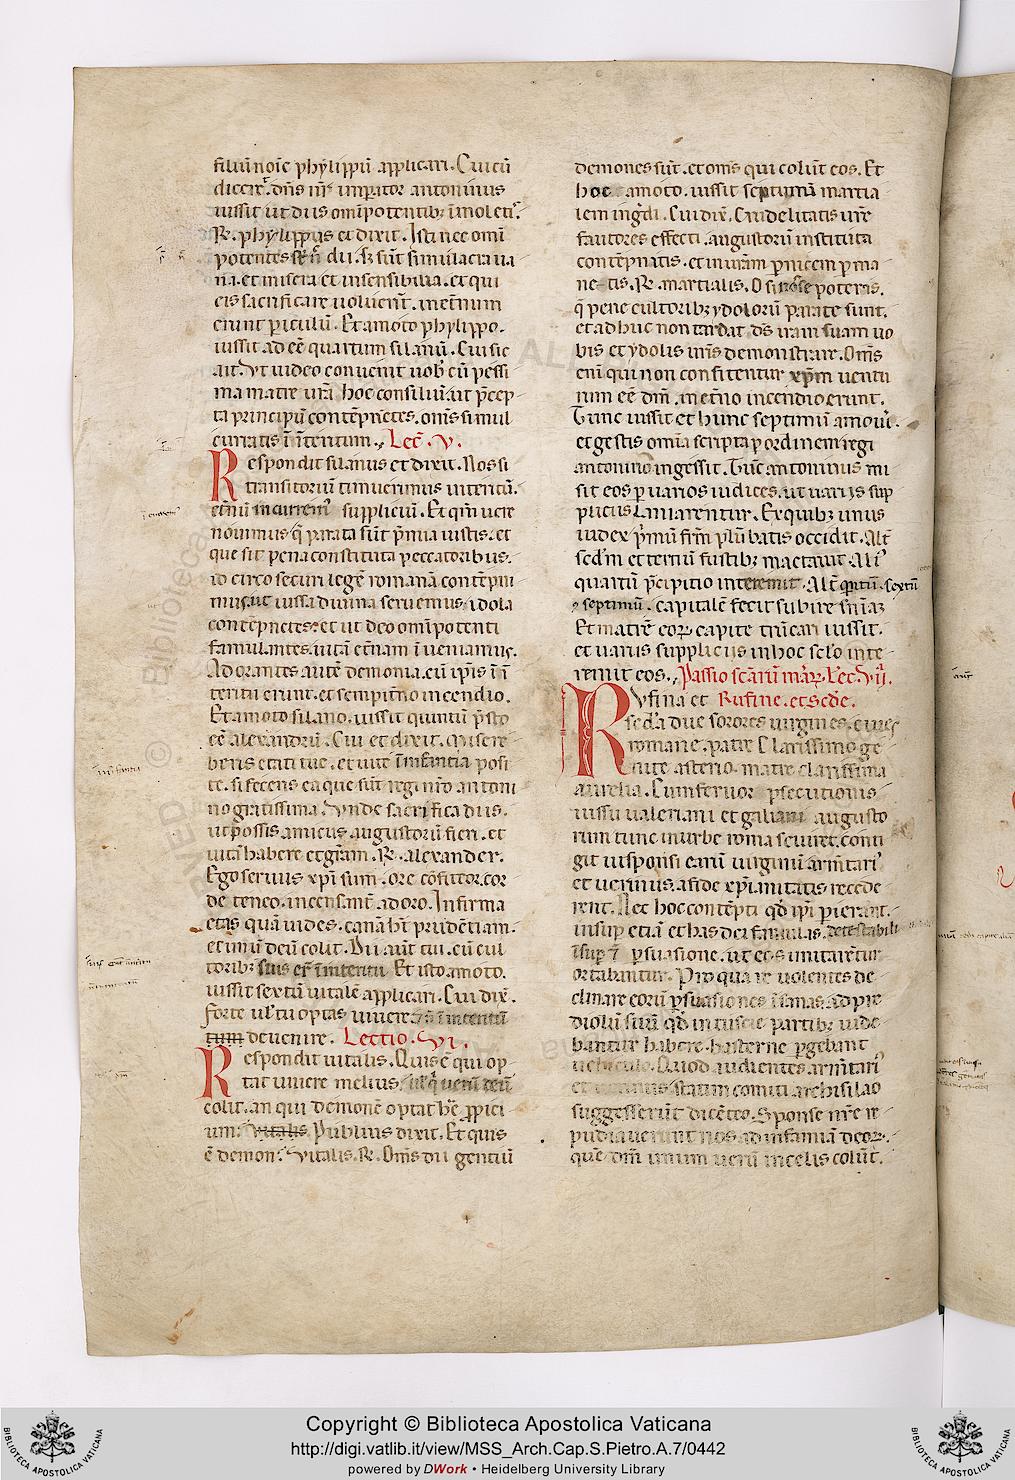 filiū noīe phylippū applicari. Cui cū
diceret. dn̄s n̄r̄ imperator antoninus
iussit ut diis om̄ipotentibꝫ īmoletis.
R̄. phylippus et dixit. Isti nec om̄i
potentes sunt n̄ dii sꝫ sūt simulacra ua
na. et misera et insensibilia. et qui
eis sacrificare uoluerīt. in et̄num
erunt periculū. Et amoto phylippo.
iussit ad eē quartum silanū. Cui sic
ait. Vt uideo conuenit uob̄ cū pessi
ma matre ur̄a hoc consiliū. ut p̄cep
ta principū contēpnētes. om̄s simul
curratis ī īteritum. Lec̄. V.
Respondit silanus et dixit. Nos si
transitoriū timuerimus interitū.
et̄nū incurremꝰ suppliciū. Et qm̄ uere
nouimus q̄ parata sūt p̄mia iustis. et
que sit pena constituta peccatoribus.
idcirco securi legē romanā contēpni
mus. ut iussa diuina seruemus. idola
contēpnētes. et ut deo om̄ipotenti
famulantes. uitā et̄nam īueniamus.
Adorantes autē demonia. cū ip̄is ī ī
teritū erunt. et sempit̄no incendio.
Et amoto silano. iussit quintū p̄sto
eē alexandrū. Cui et dixit. Misere
beris etati tue. et uite ī infantia posi
te. si feceris ea que sūt regi n̄ro antoni
no gratissima. Vnde sacrifica diis.
ut possis amicus augustorū fieri. et
uitā habere et gr̄am. R̄. alexander.
Ego seruus xp̄i sum. ore cōfiteor. cor
de teneo. incensanter adoro. Infirma
etas quā uides. canā h̄t prudētiam.
et unū deū colit. Dii aūt tui. cū cul
toribꝫ suis er̄t ī interitu. Et isto amoto.
iussit sextū uitalē applicari. Cui dix̄.
Forte uel tu optas uiuere. et n̄ ī interitū
tum deuenire. Lectio. VI.
Respondit uitalis. Quis ē qui op
tat uiuere melius. is q̄ uerū deū
colit. an qui demonē optat h̄re p̄pici
um. Vitalis Publius dixit. Et quis
ē demon. Vitalis. R̄. Om̄s dii gentiū
demones sūt. et om̄s qui colūt eos. Et
hoc amoto. iussit septimū martia
lem ingr̄di. Cui dix̄. Crudelitatis ur̄e
fautores effecti. augustorū instituta
contēpnatis. et in ur̄am p̄niciem p̄ma
netis. R̄. martialis. O si nosse poteris.
q̄ pene cultoribꝫ ydolorū parate sunt.
et adhuc non tardat d̄s iram suam uo
bis et ydolis ur̄is demonstrare. Om̄s
eni qui non confitentur xp̄m uerū
num eē dm̄. in et̄no incendio erunt.
Tunc iussit et hunc septimū amoueri.
et gestis om̄ia scripta p ordinem regi
antonino ingessit. Tūc antoninus mi
sit eos p uarios iudices. ut uariis sup
pliciis laniarentur. Ex quibꝫ unus
iudex p̄mū fr̄m plūbatis occidit. Alt̄
sedm̄ et tertiū fustibꝫ mactauit. Aliꝰ
quartū p̄cipitio interemit. Alt̄ quitū. sextū
⁊ septimū. capitalē fecit subire sn̄iaꝫ
Et matrē eorꝫ capite trūcari iussit.
et uariis suppliciis in hoc sclo inte
remit eos. Passio scārū mar̄ꝝ. Lec̄. VII.
Rufina et Rufine. et sec̄de.
secda due sorores uirgines. ciues
romane. patre clarissimo ge
nite asterio. matre clarissima
aurelia. Cum feruor psecutionis
iussu ualeriani et galiani augusto
rum tunc in urbe roma seuiret. conti
git ut sponsi earū uirginū armtariꝰ
et uerinus. a fide xp̄ianitatis recede
rent. Nec hoc contēpti qd̄ ip̄i perierant.
insup etiā et has dei famulas. detestabili
īsup ⁊ psuasione. ut eos imitarētur
ortabantur. Pro qua re uolentes de
clinare eorū psuasiones īsanas. ad pre
diolū suū qd̄ in tuscie partibꝫ uide
bantur habere. basterne pgebant
uehiculo. Quod audientes armtariꝰ
et uerinus statim comiti archisilao
suggesserūt dicētes. Sponse nr̄e re
pudiauerunt nos. ad infamiā deorꝫ.
que dm̄ unum uerū in celis colūt.
Copyright © Biblioteca Apostolica Vaticana
http://digi.vatlib.it/view/MSS_Arch.Cap.S.Pietro.A.7/0442
powered by DWork • Heidelberg University Library
BIBLIOTECA APOSTOLICA VATICANA
BIBLIOTECA APOSTOLICA VATICANA